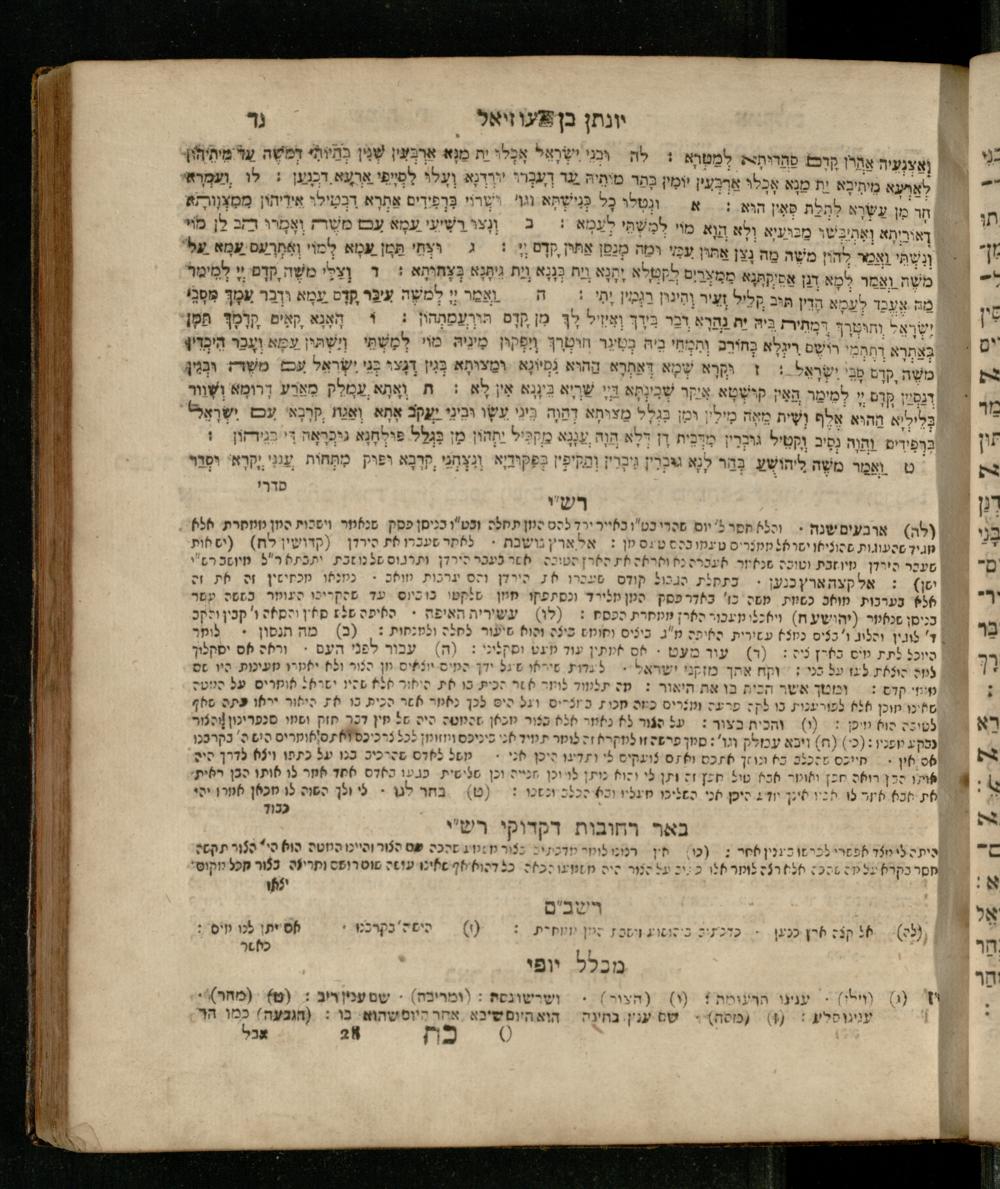 יונתן בן עוזיאל נד
וְאַצְנְעֵיהּ אַהֲרֹן קֳדָם סַהֲדוּתָא לְמַטְּרָא : לה וּבְנֵי יִשְׂרָאֵל אֲכָלוּ יַת מַנָּא אַרְבְּעִין שְׁנִין בְּחַיּוֹתֵי דְמֹשֶׁה עַד מֵיתֵיהוֹן
לְאַרְעָא מֵיתִיבָא יַת מַנָּא אֲכָלוּ אַרְבְּעִין יוֹמִין בָּתַר מוֹתֵיהּ עַד דְּעָבְרוּ יוֹרְדְנָא וְעָלוּ לְסַיְיפֵי אַרְעָא דִכְנָעַן : לו וְעוּמְרָא
חָד מִן עַשְׂרָא לִתְלַת סְאִין הוּא : א וּנְטָלוּ כָּל כְּנִישְׁתָּא וגו׳ וּשְׁרוֹי בִּרְפִידִים אַתְרָא דְּבַטִּילוּ אִידֵיהוֹן מִמִּצְוָותָא
דְאוֹרַיְיתָא וְאִתְיַבָּשׁוּ מַבּוּעַיָּא וְלָא הֲוָא מוֹי לְמִשְׁתֵּי לְעַמָּא : ב וּנְצוּ רַשִּׁיעֵי עַמָּא עִם מֹשֶׁה וְאָמְרוּ הַב לַן מוֹי
וְנִשְׁתֵּי וַאֲמַר לְהוֹן מֹשֶׁה מַה נָצַן אַתּוּן עִמִּי וּמַה מְנַסַן אַתּוּן קֳדָם יְיָ : ג וּצְחֵי תַּמָּן עַמָּא לְמוֹי וְאִתְרָעַם עַמָּא עַל
מֹשֶׁה וַאֲמַר לְמָא דְנַן אַסִּיקְתָּנָא מִמִּצְרַיִם לְקַטָּלָא יָתָנָא וְיַת בְּנָנָא וְיַת גִּיתָנָא בְּצַחוּתָא : ד וְצַלֵּי מֹשֶׁה קֳדָם יְיָ לְמֵימַר
מַה אֶעֱבַד לְעַמָּא הָדֵין תּוּב קְלֵיל זְעֵיר וְהִינוּן רַגְמִין יָתִי : ה וַאֲמַר יְיָ לְמֹשֶׁה עִיבַּר קֳדָם עַמָּא וּדְבַר עִמָּךְ מִסָּבֵי
יִשְׂרָאֵל וְחוּטְרָךְ דִּמְחִית בֵּיהּ יַת נַהֲרָא דְּבַר בִּידָךְ וְאֵיזִיל לָךְ מִן קֳדָם תּוּרְעַמְתְּהוֹן : ו הָאֲנָא קָאִים קֳדָמָךְ תַּמָּן
בְּאַתְרָא דְתִתְמֵי רוֹשֵׁם רִיגְלָא בְּחוֹרֵב וְתִמְחֵי בֵיהּ בְּטִינַר חוּטְרָךְ וְיִפְּקוּן מִינֵּיהּ מוֹי לְמִשְׁתֵּי וְיִשְׁתּוּן עַמָּא וַעֲבַד הֵיכְדֵין
מֹשֶׁה קֳדָם סָבֵי יִשְׂרָאֵל : ז וּקְרָא שְׁמָא דְאַתְרָא הַהוּא נִסְיוֹנָא וּמַצּוּתָא בְּגִין דִּנְצוּ בְּנֵי יִשְׂרָאֵל עִם מֹשֶׁה וּבְגִין
דְּנַסְיָין קֳדָם יְיָ לְמֵימַר הַאִין קוּשְׁטָא אִיקַר שְׁכִינְתָּא דַּיְיָ שַׁרְיָא בֵּינָנָא אִין לָא : ח וַאֲתָא עֲמָלֵק מֵאֲרַע דְּרוֹמָא וּשְׁווֹר
בְּלֵילְיָא הַהוּא אֲלַף וְשִׁית מְאָה מִילִין וּמִן בִּגְלַל מַצּוּתָא דְהַוָּה בֵּינֵי עֵשָׂו וּבֵינֵי יַעֲקֹב אֲתָא וְאַגַּח קְרָבָא עִם יִשְׂרָאֵל
בִּרְפִידִים וַהֲוָה נְסִיב וְקָטִיל גּוּבְרִין מִדְּבֵית דָּן דְּלָא הֲוָה עֲנָנָא מְקַבֵּיל יַתְהוֹן מִן בִּגְלַל פּוּלְחָנָא נוּכְרָאָה דִּי בֵּינֵיהוֹן :
ט וַאֲמַר מֹשֶׁה לִיהוֹשֻׁעַ בְּחַר לָנָא גוּבְרִין גִּיבָּרִין וְתַקִּיפִין בְּפִקּוּדַיָּא וְנִצְחָנֵי קְרָבָא וּפוּק מִתְּחוֹת עֲנָנֵי יְקָרָא וּסְדַר
סדרי
רש״י
(לה) ארבעים שנה · והלא חסר ל׳ יום שהרי בט״ו באייר ירד להם המן תחלה ובט״ו בניסן פסק שנאמר וישבות המן ממחרת אלא
מגיד שהעוגות שהוציאו ישראל ממצרים טעמו בהם טעם מן : אל ארץ נושבת · לאחר שעברו את הירדן (קדושין לח) (יש אות
שעבר הירדן מיושבת וטובה שנאמר אעברה נא ואראה את הארץ הטובה אשר בעבר הירדן ותרגום של נושבת יתבתא ר״ל מיושב רש״י
ישן) : אל קצה ארץ כנען · בתחלת הגבול קודם שעברו את הירדן והם ערבות מואב · נמצאו מכחישין זה את זה
אלא בערבות מואב כשמת משה בז׳ באדר פסק המן מלירד ונסתפקו ממן שלקטו בו ביום עד שהקריבו העומר בששה עשר
בניסן שנאמר (יהושע ה) ויאכלו מעבור הארץ ממחרת הפסח : (לו) עשירית האיפה · האיפה שלש סאין והסאה ו׳ קבין והקב
ד׳ לוגין והלוג ו׳ בצים נמצא עשירית האיפה מ״ג ביצים וחומש ביצה והוא שיעור לחלה ולמנחות : (ב) מה תנסון · לומר
היוכל לתת מים בארץ ציה : (ד) עוד מעט · אם אמתין עוד מעט וסקלוני : (ה) עבור לפני העם · וראה אם יסקלוך
למה הוצאת לעז על בני : וקח אתך מזקני ישראל · לעדות שיראו שעל ידך המים יוצאים מן הצור ולא יאמרו מעינות היו שם
מימי קדם : ומטך אשר הכית בו את היאור : מה תלמוד לומר אשר הכית בו את היאור אלא שהיו ישראל אומרים על המטה
שאינו מוכן אלא לפורענות בו לקה פרעה ומצרים כמה מכות במצרים ועל הים לכך נאמר אשר הכית בו את היאור יראו עתה שאף
לטובה הוא מוכן : (ו) והכית בצור : על הצור לא נאמר אלא בצור מכאן שהמטה היה של מין דבר חזק ושמו סנפרינון והצור
נבקע מפניו : (ח) ויבא עמלק וגו׳ : סמך פרשה זו למקרא זה לומר תמיד אני ביניכם ומזומן לכל צרכיכם ואתם אומרים היש ה׳ בקרבנו
אם אין · חייכם שהכלב בא ונושך אתכם ואתם צועקים לי ותדעו היכן אני · משל לאדם שהרכיב בנו על כתפו ויצא לדרך היה
אותו הבן רואה חפץ ואומר אבא טול חפץ זה ותן לי והוא נותן לו וכן שנייה וכן שלישית פגעו באדם אחד אמר לו אותו הבן ראית
את אבא אמר לו אביו אינך יודע היכן אני השליכו מעליו ובא הכלב ונשכו : (ט) בחר לנו · לי ולך השוה לו מכאן אמרו יהי
כבוד
באר רחובות דקדוקי רש״י
היתה לי מלד אפשרי לפרשו בענין אחר : (כו) אין רצונו לומר מדכתיב בצור משמע שהכה עם הצור והיינו המטה הוא הי׳ הצור תקשה
חסר בקרא על מה שהכה אלא רצה לומר אלו כתיב על הצור היה משמעו הכאה כל דהוא אף שאינו עושה שום רושם וחריצה בצור מכל מקום
יצאו
רשב״ם
(לה) אל קצה ארץ כנען · כדכתיב ביהושע וישבת המן ממחרת : (ז) היש ה׳ בקרבנו · אם יתן לנו מים :
כאשר
מכלל יופי
יז (ג) (וילן) · ענינו תרעומת : (ו) (הצור) · ענינו סלע : (ז) (מסה) · שם ענין בחינה ושרשו נסה : (ומריבה) · שם ענין ריב : (ט) (מחר) ·
הוא היום שיבא אחר היום שהוא בו : (הגבעה) כמו הר
() כח 28 אבל